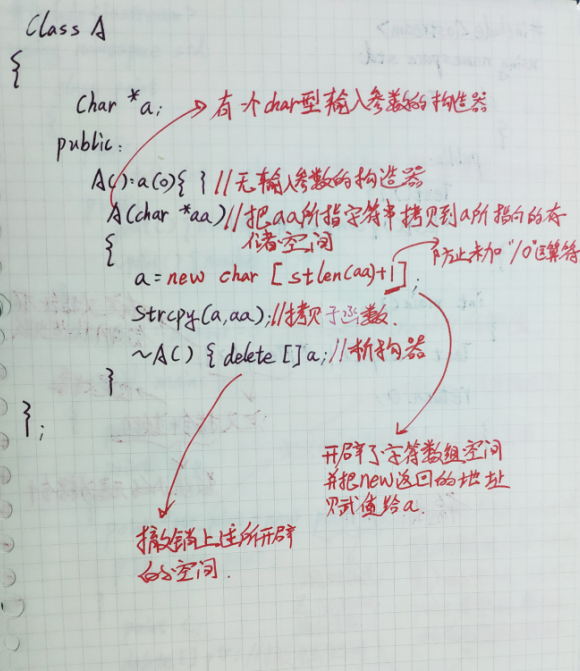 Class A
{
Char *a; 有一个char型输入参数的构造器
public:
A():a(0){ } //无输入参数的构造器
A(char *aa) //把aa所指字符串拷贝到a所指向的存
储空间
{ 防止未加"/0"运算符
a=new char [stlen(aa)+1];
Strcpy(a,aa);//拷贝子函数.
~A() {delete []a; //析构器
}
};
开辟了字符数组空间
并把new返回的地址
赋值给a.
撤销上述所开辟
的空间.